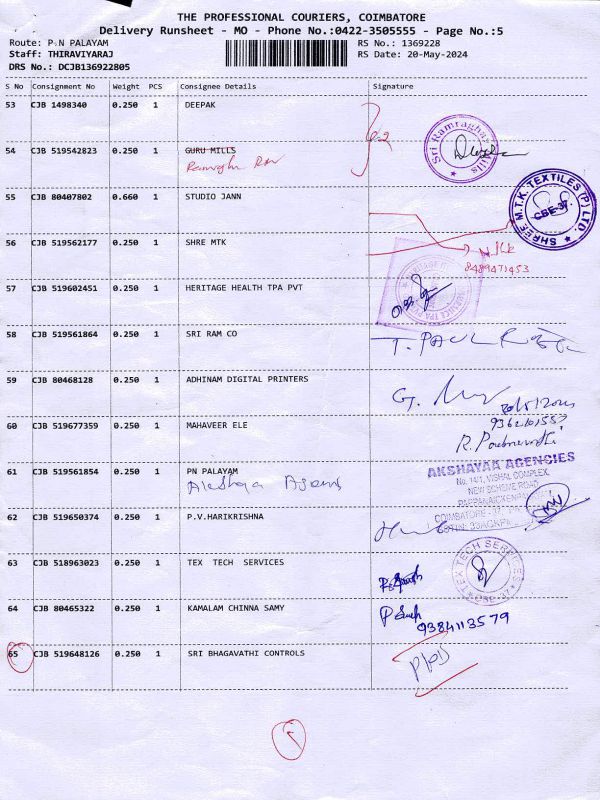 THE PROFESSIONAL COURIERS, COIMBATORE
Delivery Runsheet - MO - Phone No.:0422-3505555 - Page No.:5
Route: P N PALAYAM RS No.: 1369228
Staff: THIRAVIYARAJ RS Date: 20-May-2024
DRS No.: DCJB136922805
S No Consignment No Weight PCS Consignee Details Signature
53 CJB 1498340 0.250 1 DEEPAK
Sri Ramraghav Mills
54 CJB 519542823 0.250 1 GURU MILLS
55 CJB 80407802 0.660 1 STUDIO JANN
SHREE M.T.K. TEXTILES (P) LTD
CBE-37
56 CJB 519562177 0.250 1 SHRE MTK
8489471453
57 CJB 519602451 0.250 1 HERITAGE HEALTH TPA PVT
58 CJB 519561864 0.250 1 SRI RAM CO
T. PAUL
59 CJB 80468128 0.250 1 ADHINAM DIGITAL PRINTERS
60 CJB 519677359 0.250 1 MAHAVEER ELE
61 CJB 519561854 1 0.250 PN PALAYAM
AKSHAYAA AGENCIES
No. 14/1, VISHAL COMPLEX,
NEW SCHEME ROAD,
COIMBATORE - 37.
62 CJB 519650374 0.250 1 P.V.HARIKRISHNA
63 CJB 518963023 0.250 1 TEX TECH SERVICES
TEX TECH SERVICES
CBE-37
64 CJB 80465322 0.250 1 KAMALAM CHINNA SAMY
9384113579
65 CJB 519648126 0.250 1 SRI BHAGAVATHI CONTROLS